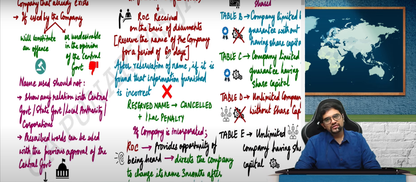 Company that already exists
→ If used by the Company
Will constitute an offence
is undesirable in the opinion of the Central Govt
Name used should not:
→ show any relation with Central Govt / State Govt / Local Authority / Corporations
→ Prescribed words can be used with the previous approval of the Central Govt
→ ROC Reserved on the basis of documents
[Reserve the name of the Company for a period of 60 days]
→ After reservation of name, if it is found that information furnished is incorrect
RESERVED NAME → CANCELLED + 1 Lac PENALTY
If Company is incorporated;
ROC → Provides opportunity of being heard → directs the Company to change its name 3 months after
Shares
TABLE B → Company Limited
guarantee without having share capital
TABLE C → Company Limited
Guarantee having share capital
TABLE D → Unlimited Company without Share Cap
TABLE E → Unlimited
company having share capital